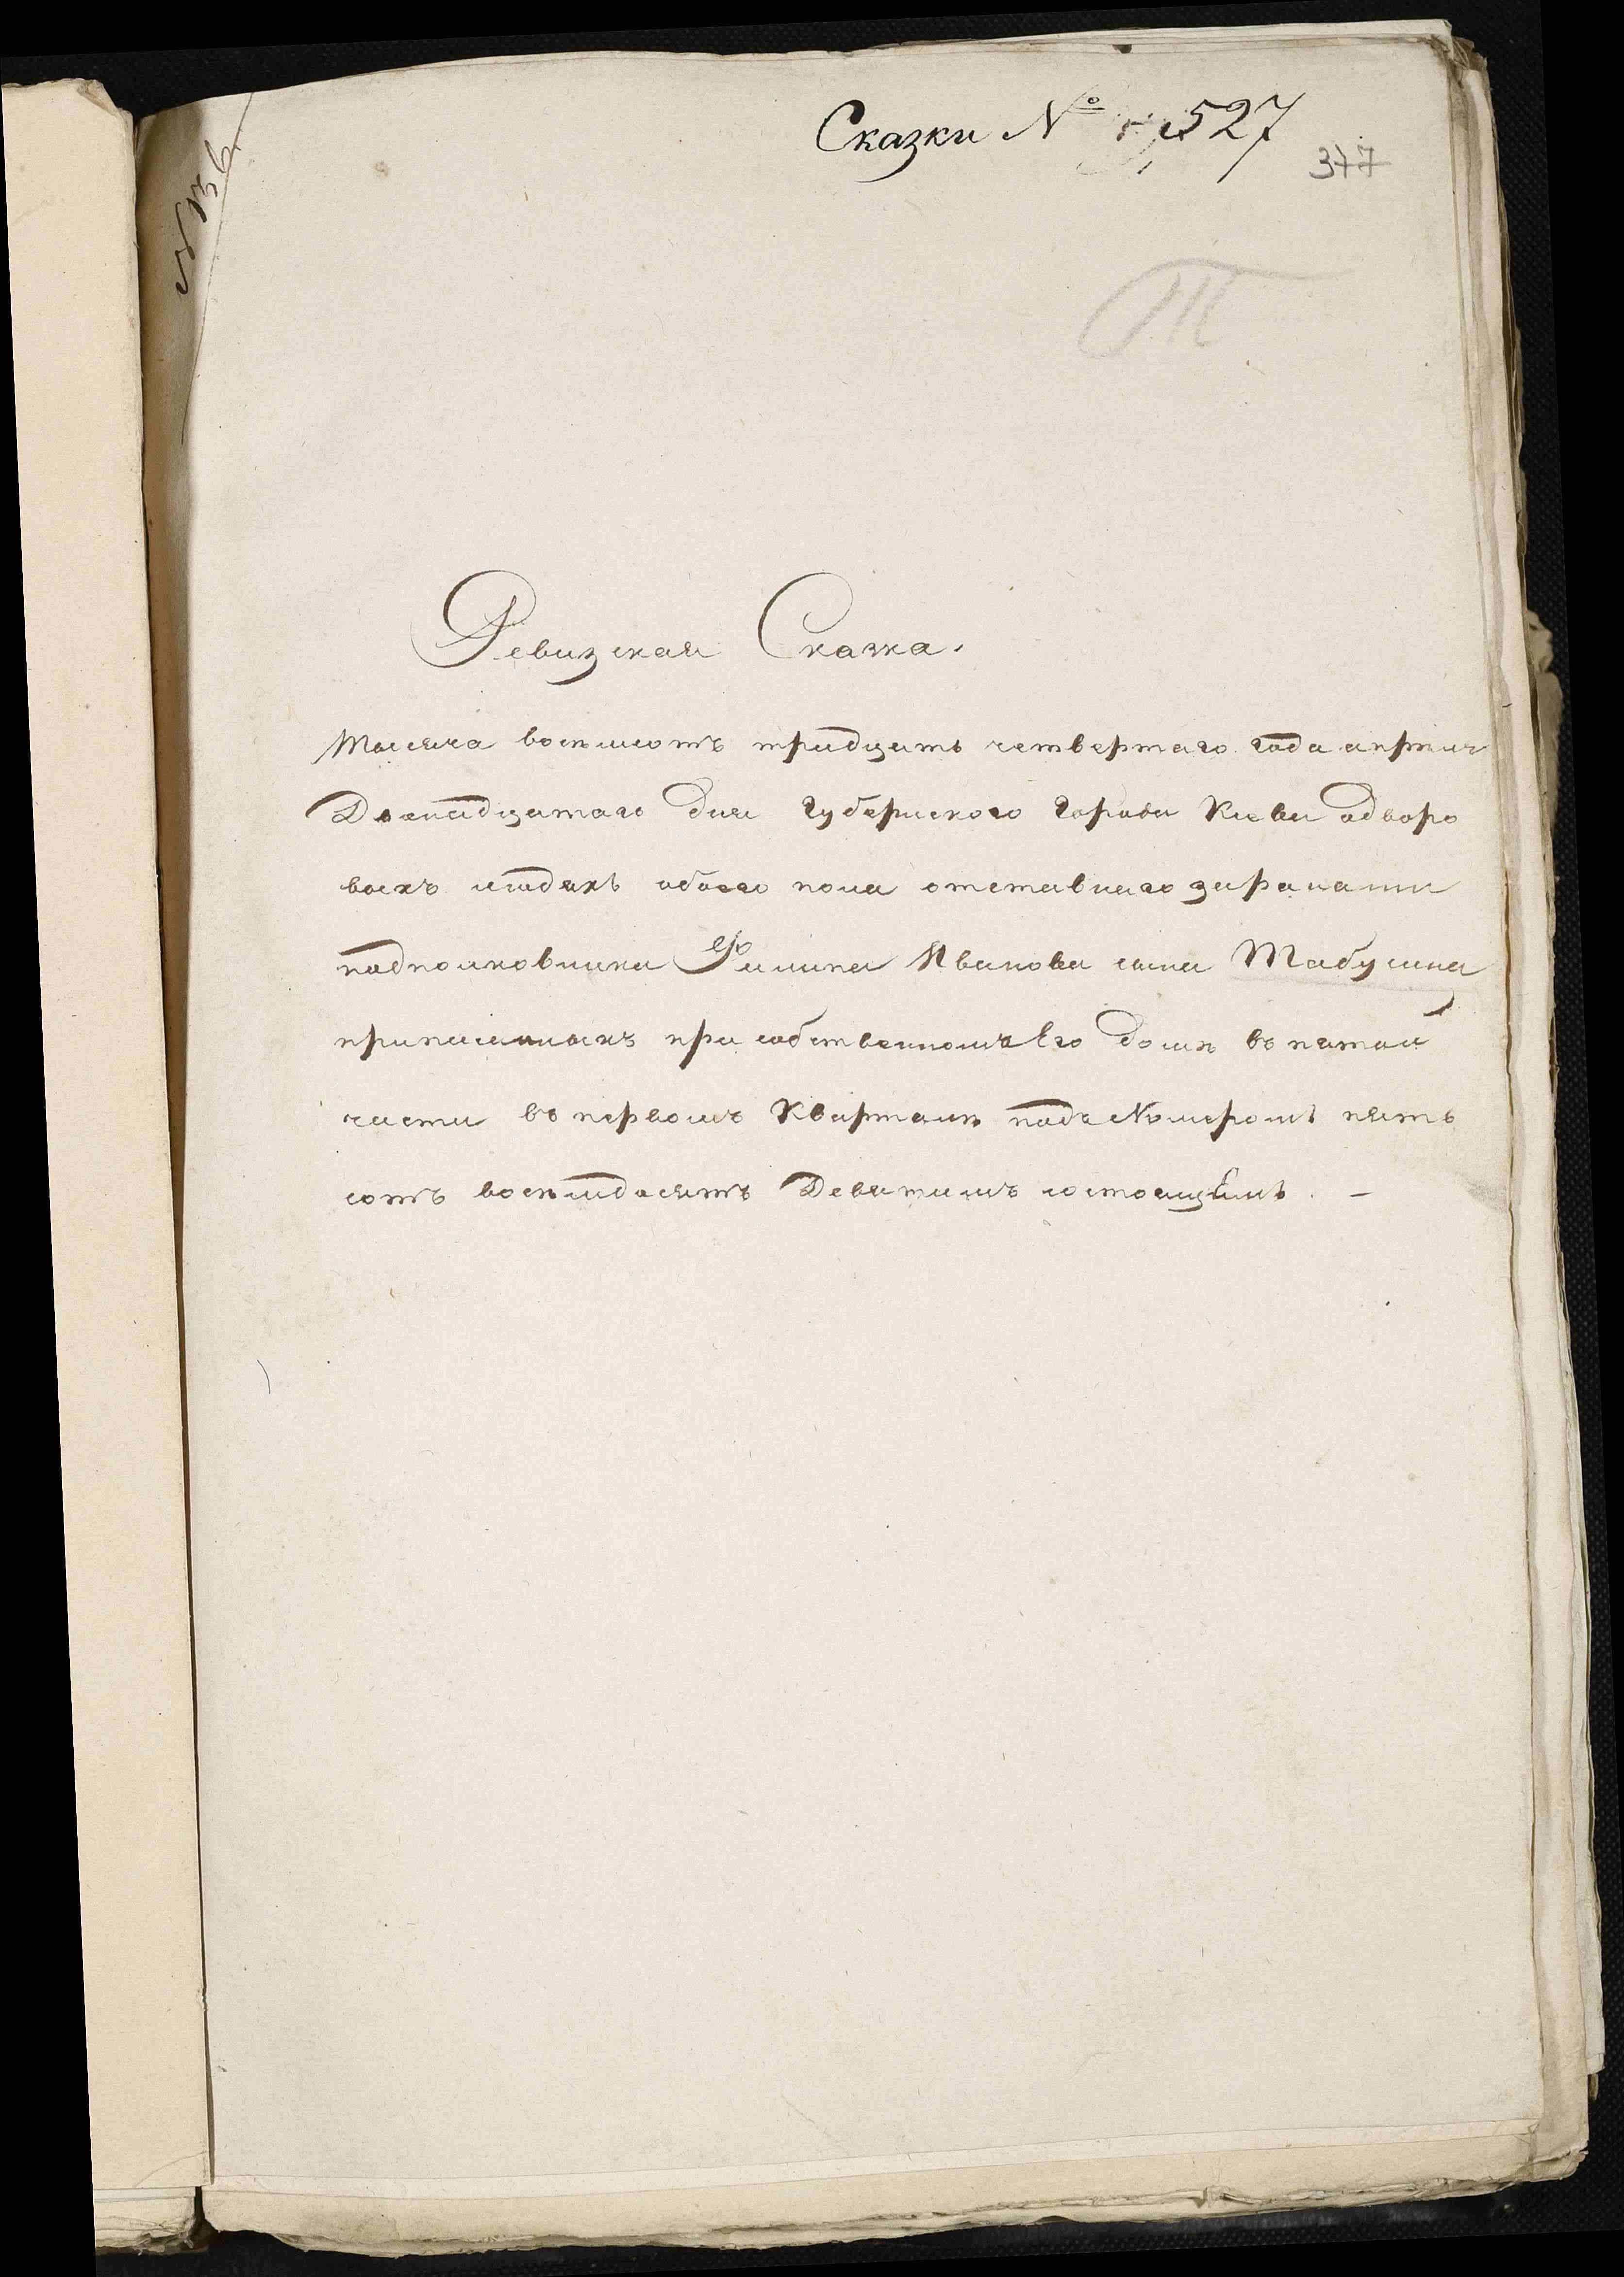 Сказки № 527
377
Т
Ревизская Сказка.
Тысяча восемсотъ тридцать четвертаго года апреля
Двенадцатаго дня Губернского Города Киева одворо
выхъ людяхъ обоего пола отставнаго заранами
подполковника Филипа Иванова сына Табулина
приписныхъ при собственномъ Его доме въ пятой
части въ первомъ Квартале подъ Номеромъ пять
сотъ восемдесятъ Девятымъ состоящимъ. –